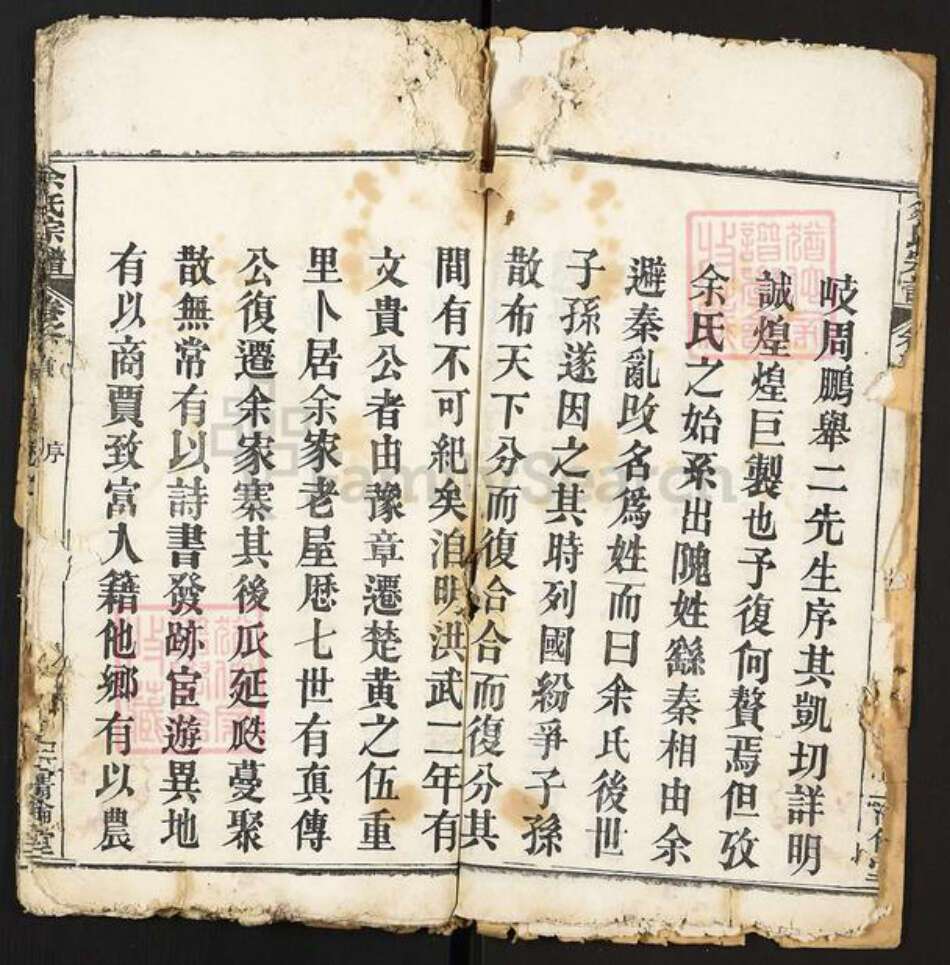 岐周鵬舉二先生序其凱切詳明
誠煌煌巨製也予復何贅焉但攷
余氏之始系出隗姓繇秦相由余
避秦亂改名爲姓而曰余氏後世
子孫遂因之其時列國紛爭子孫
散布天下分而復合合而復分其
間有不可紀矣洎明洪武二年有
文貴公者由豫章遷楚黄之伍重
里卜居余家老屋厯七世有真傳
公復遷余家寨其後瓜延瓞蔓聚
散無常有以詩書發跡宦遊異地
有以商賈致富入籍他鄉有以農
余氏宗譜
序
FamilySearch